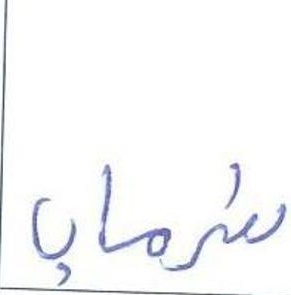 شرماب